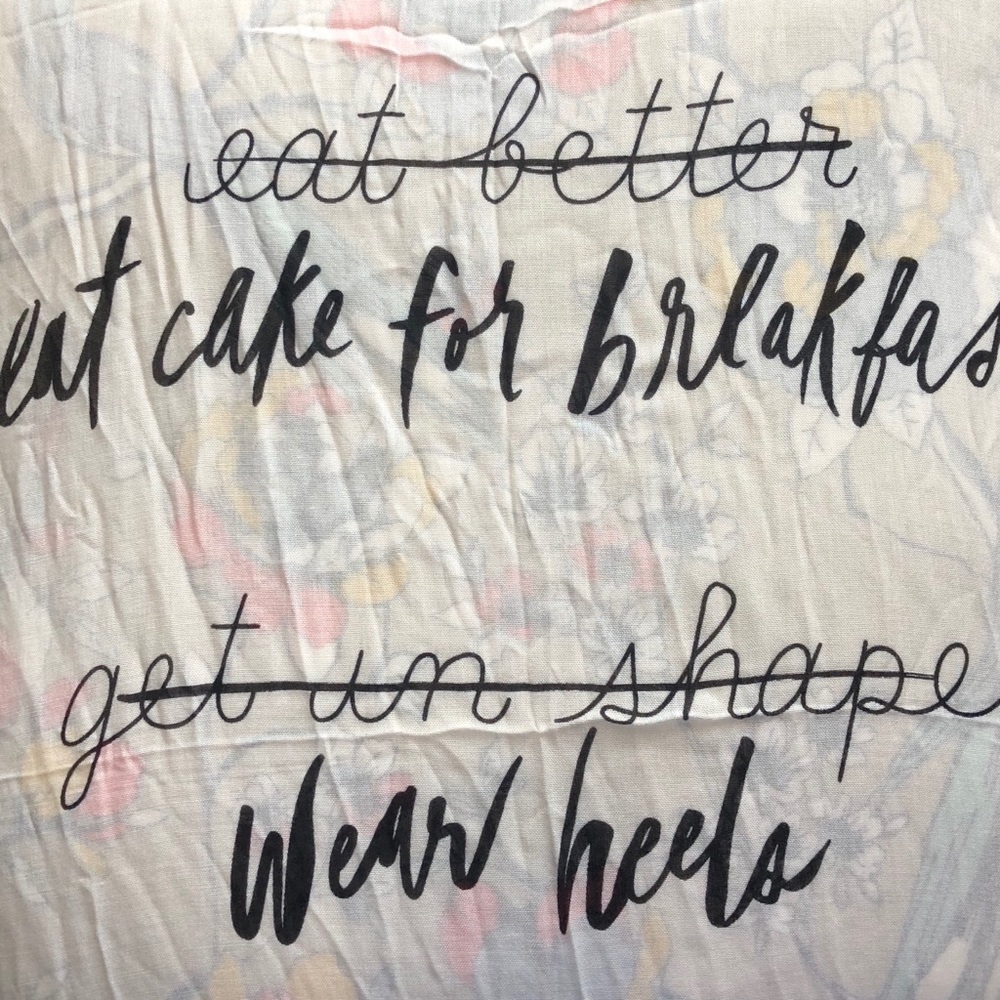 eat better
eat cake for breakfas
get in shape
Wear heels